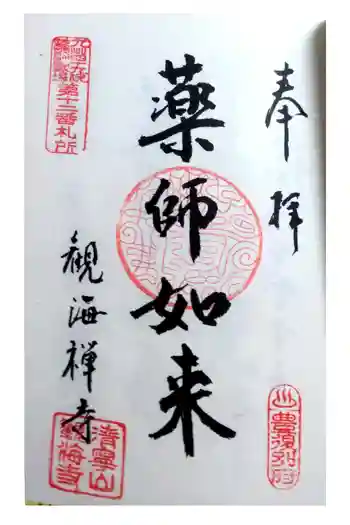 奉拝
薬師如来
観海禅寺
第十二番札所
清寧山
観海寺
♨豊後別府